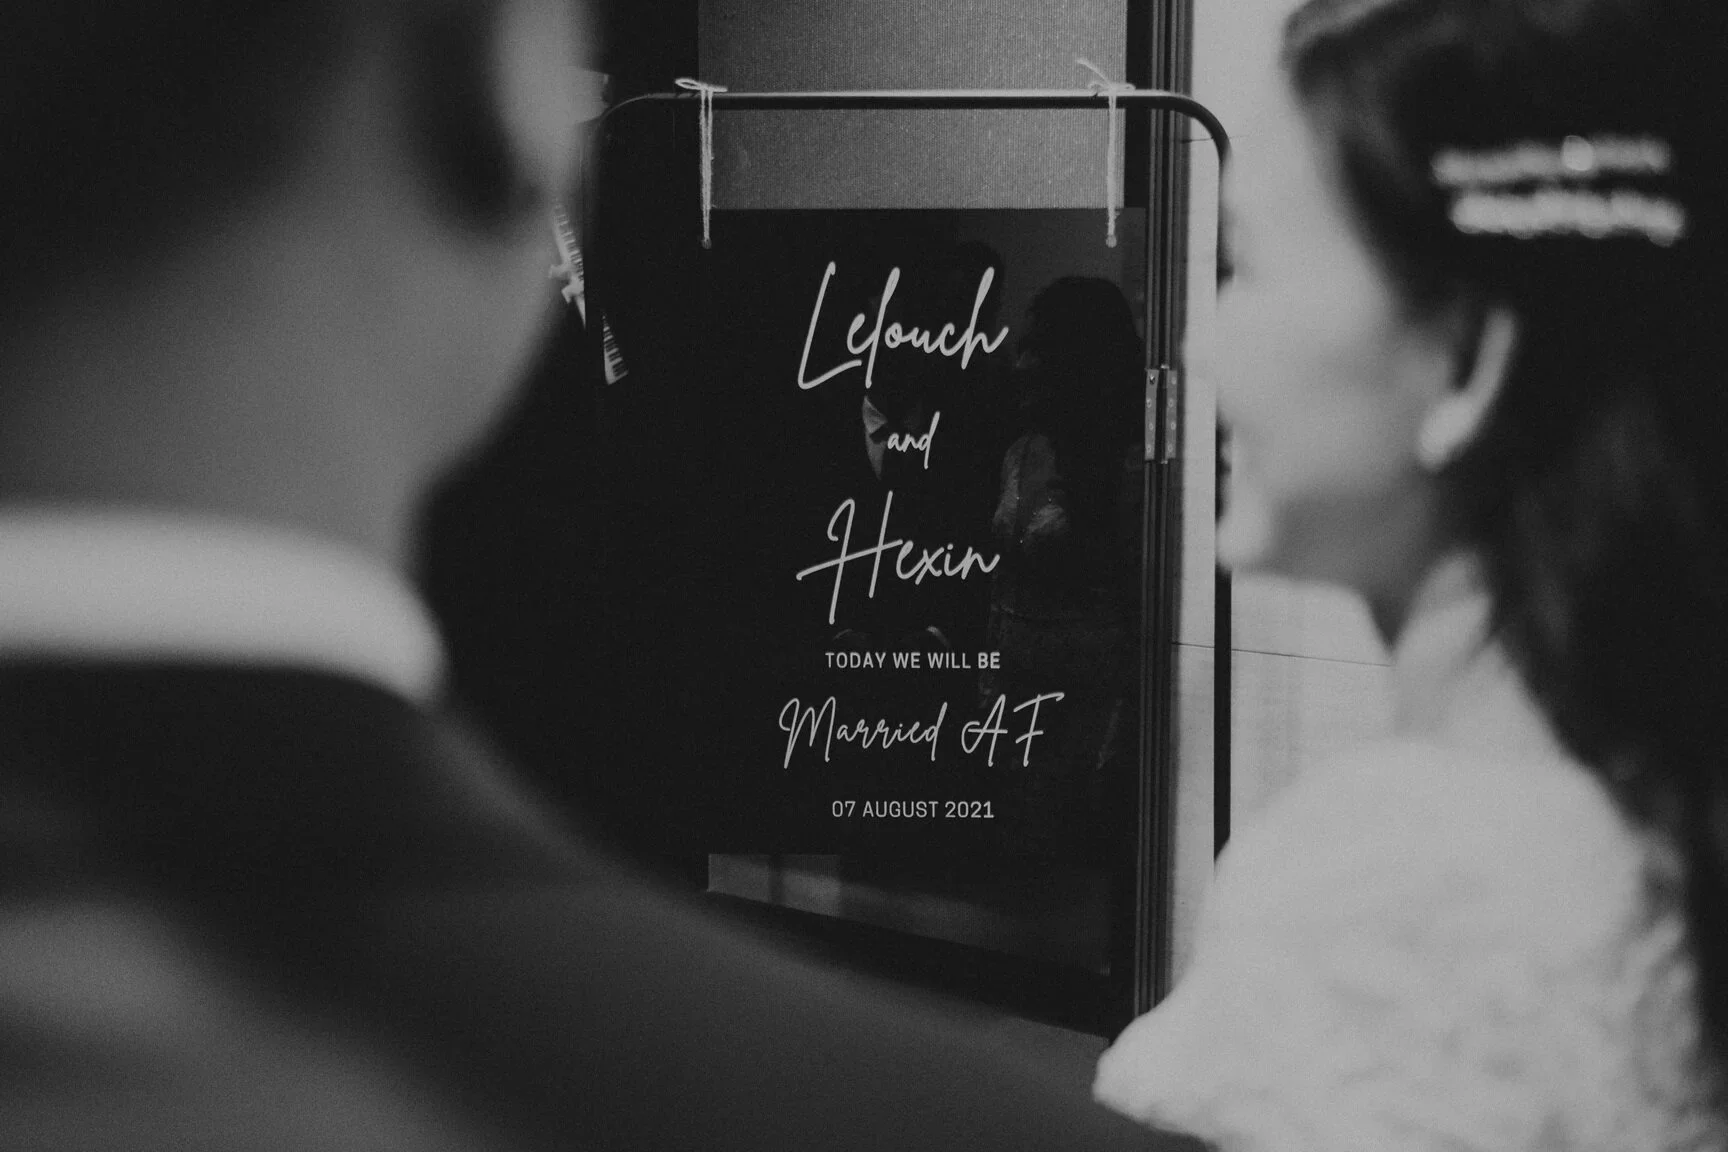 Lelouch
and
Hexin
TODAY WE WILL BE
Married AF
07 AUGUST 2021